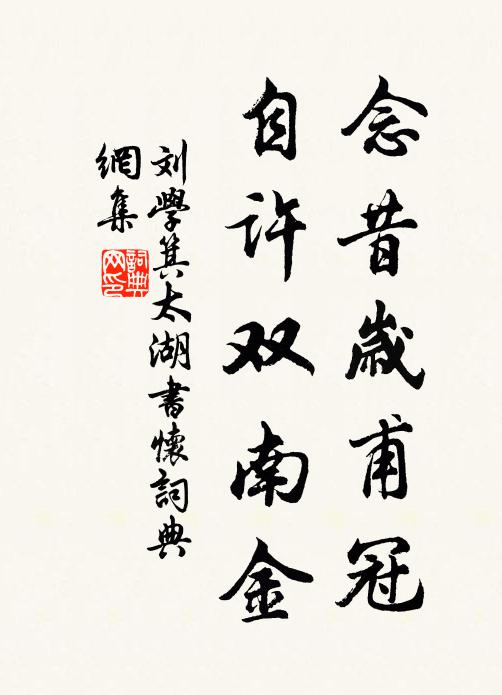 念昔岁甫冠
自许双南金
刘學箕太湖書懷詞典
網集
詞典网印